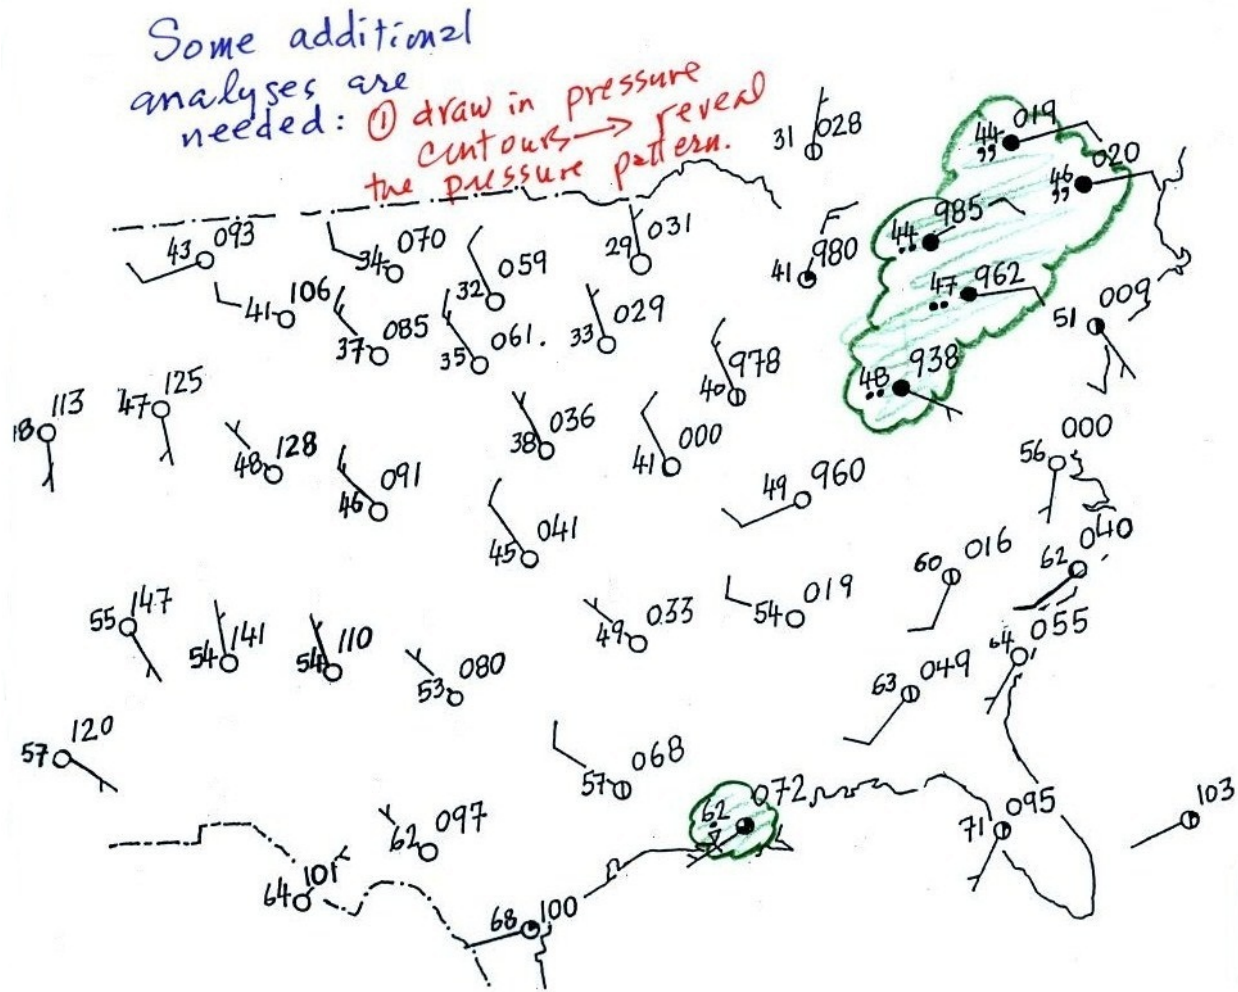 Some additional
analyses are
needed: ① draw in pressure
contours → reveal
the pressure pattern.
31 028
44 019
46 020
43 093
34 070
32 059
29 031
41 980
44 985
47 962
51 009
41 106
37 085
35 061.
33 029
40 978
48 938
18 113
47 125
48 128
46 091
38 036
41 000
49 960
56 000
45 041
60 016
62 040
55 147
54 141
54 110
53 080
49 033
54 019
63 049
64 055
57 120
57 068
62 097
62 072
71 095
103
64 101
68 100